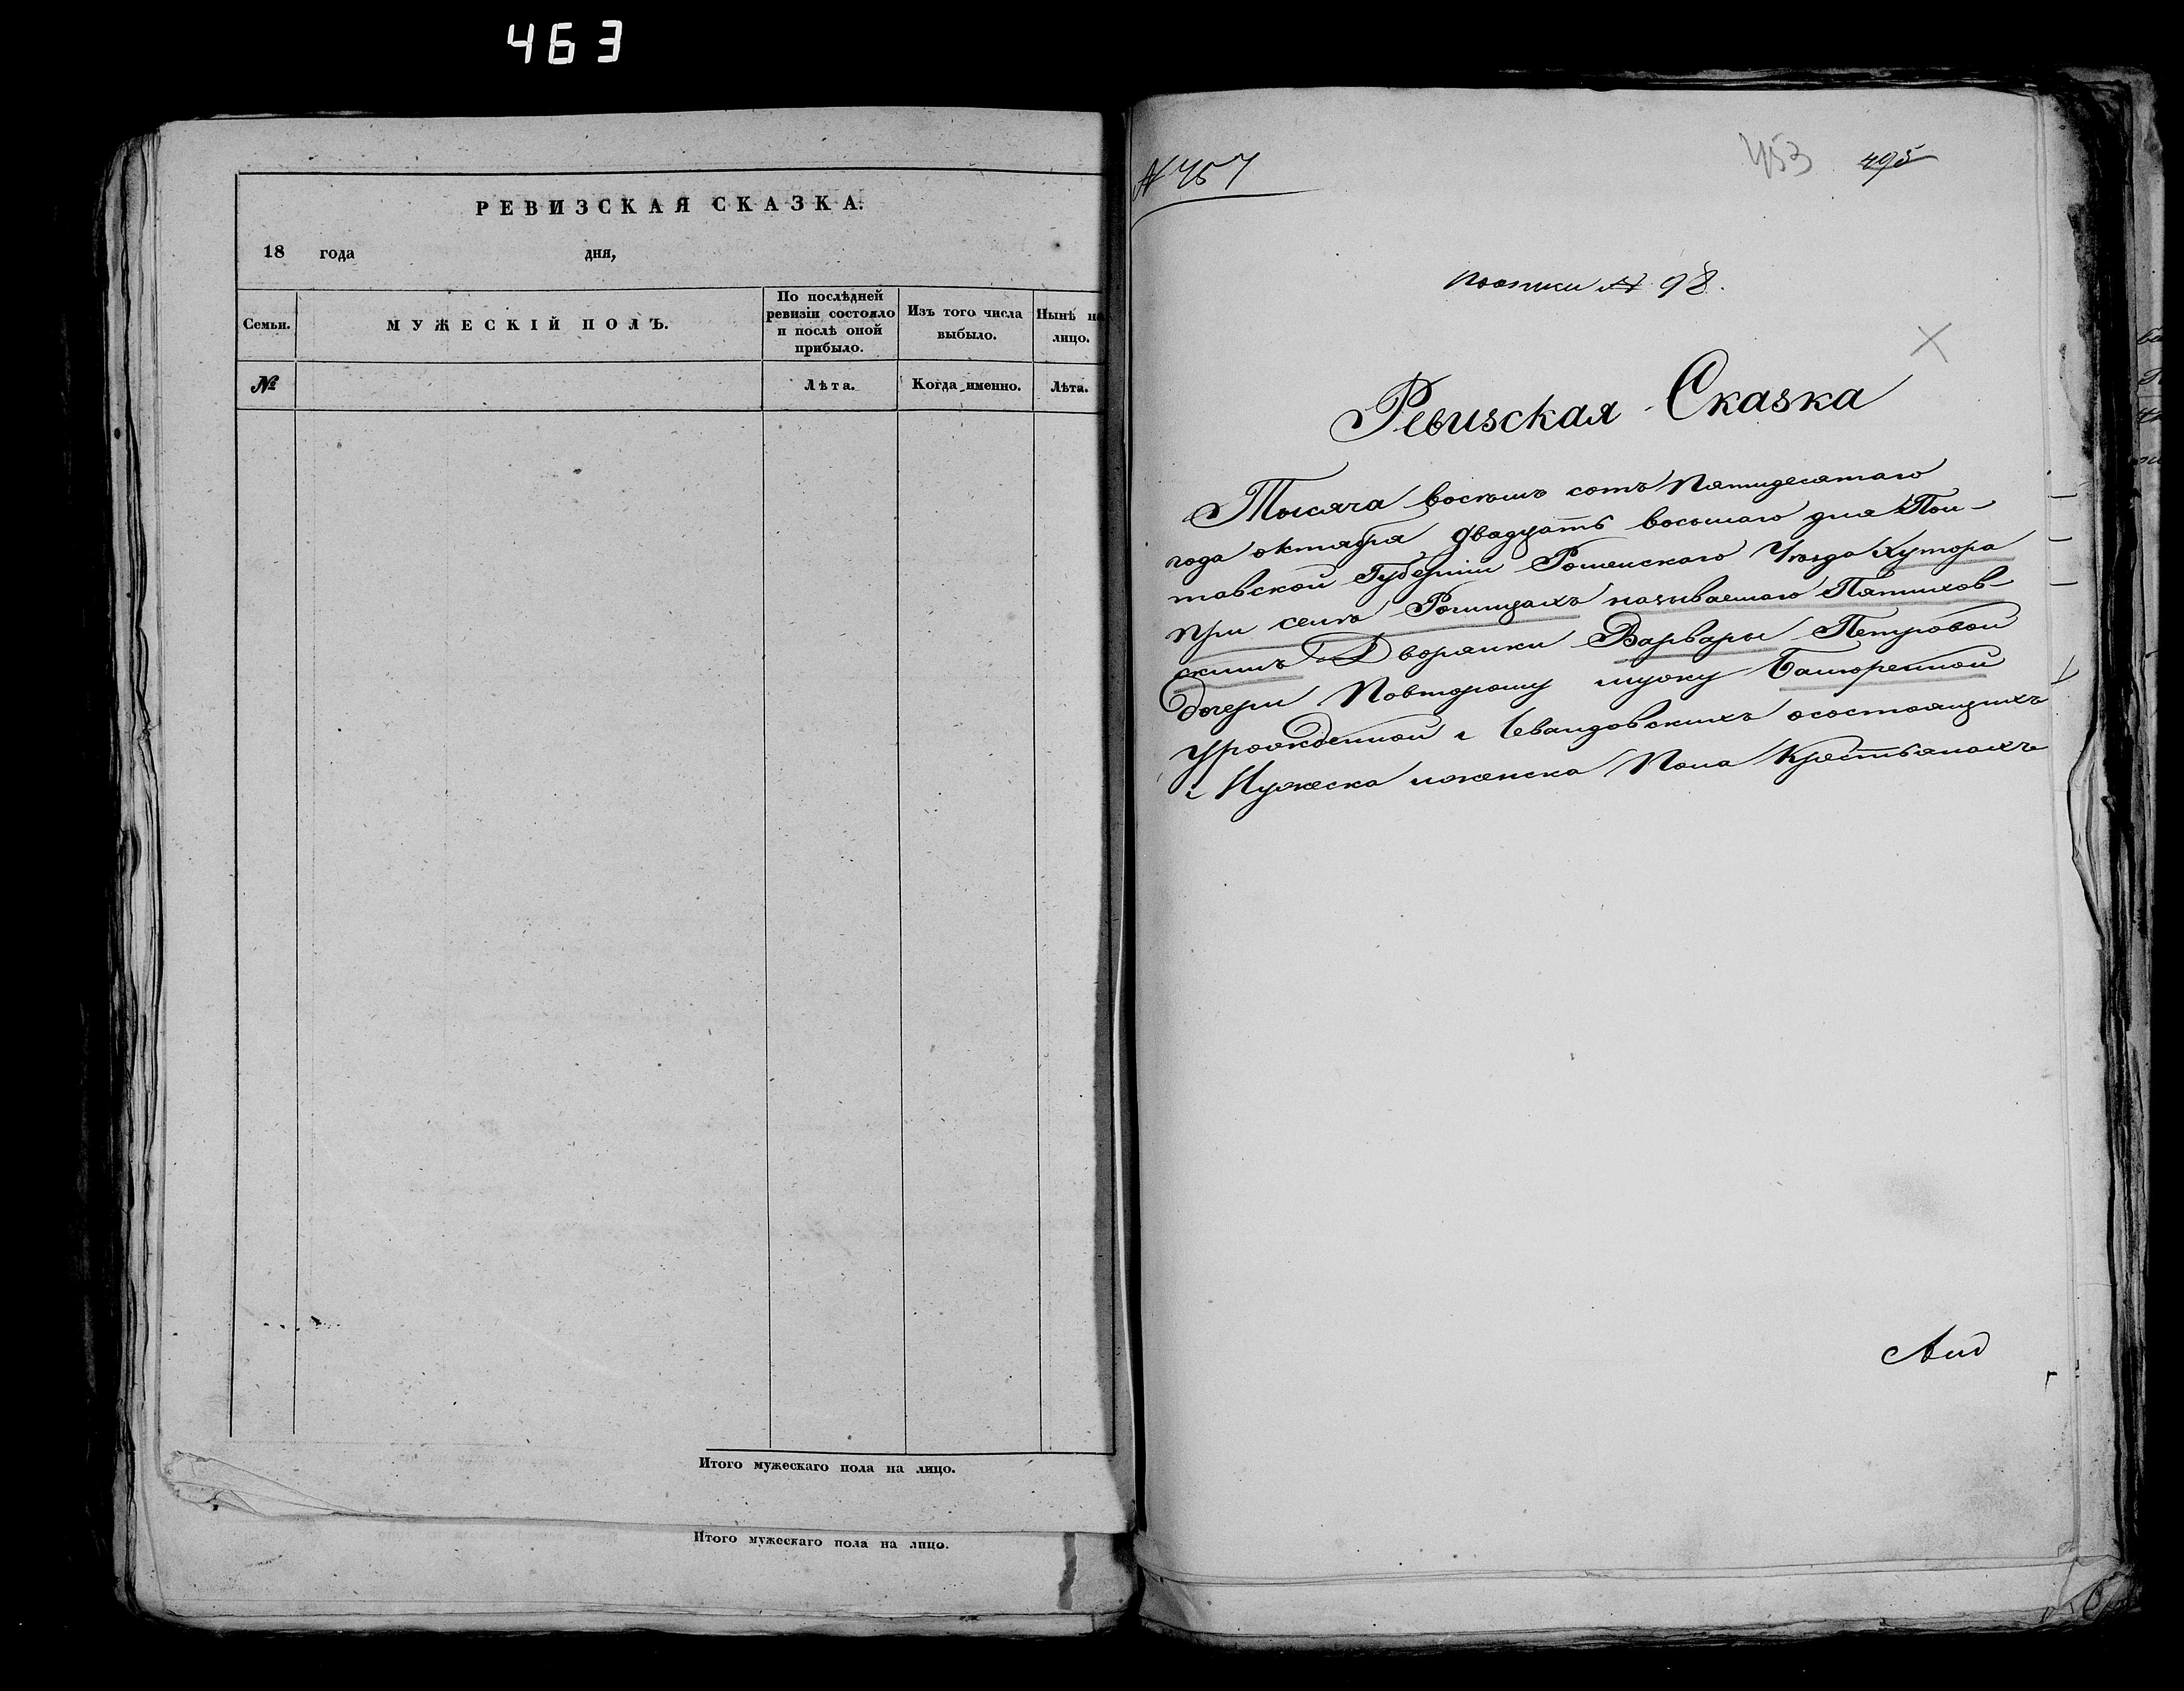 463
РЕВИЗСКАЯ СКАЗКА.
18 года дня,
Семьи.
МУЖЕСКІЙ ПОЛЪ.
По послѣдней
ревизіи состояло
и послѣ оной
прибыло.
Изъ того числа
выбыло.
Нынѣ на
лицо.
№
Лѣта.
Когда именно.
Лѣта.
Итого мужескаго пола на лицо.
Итого мужескаго пола на лицо.
N 457
453 495
N 98.
Ревизская Сказка
Тысяча восемь сотъ Пятидесятаго
года октября двадцать восьмаго дня Пол-
тавской Губерніи Роменскаго Уѣзда Хутора
при селѣ Рогинцахъ называемаго Пятихов-
скимъ Дворянки Варвары Петровой
дочери Повторому мужу
урожденной состоящихъ
Мужеска иженска Пола Крестьянахъ